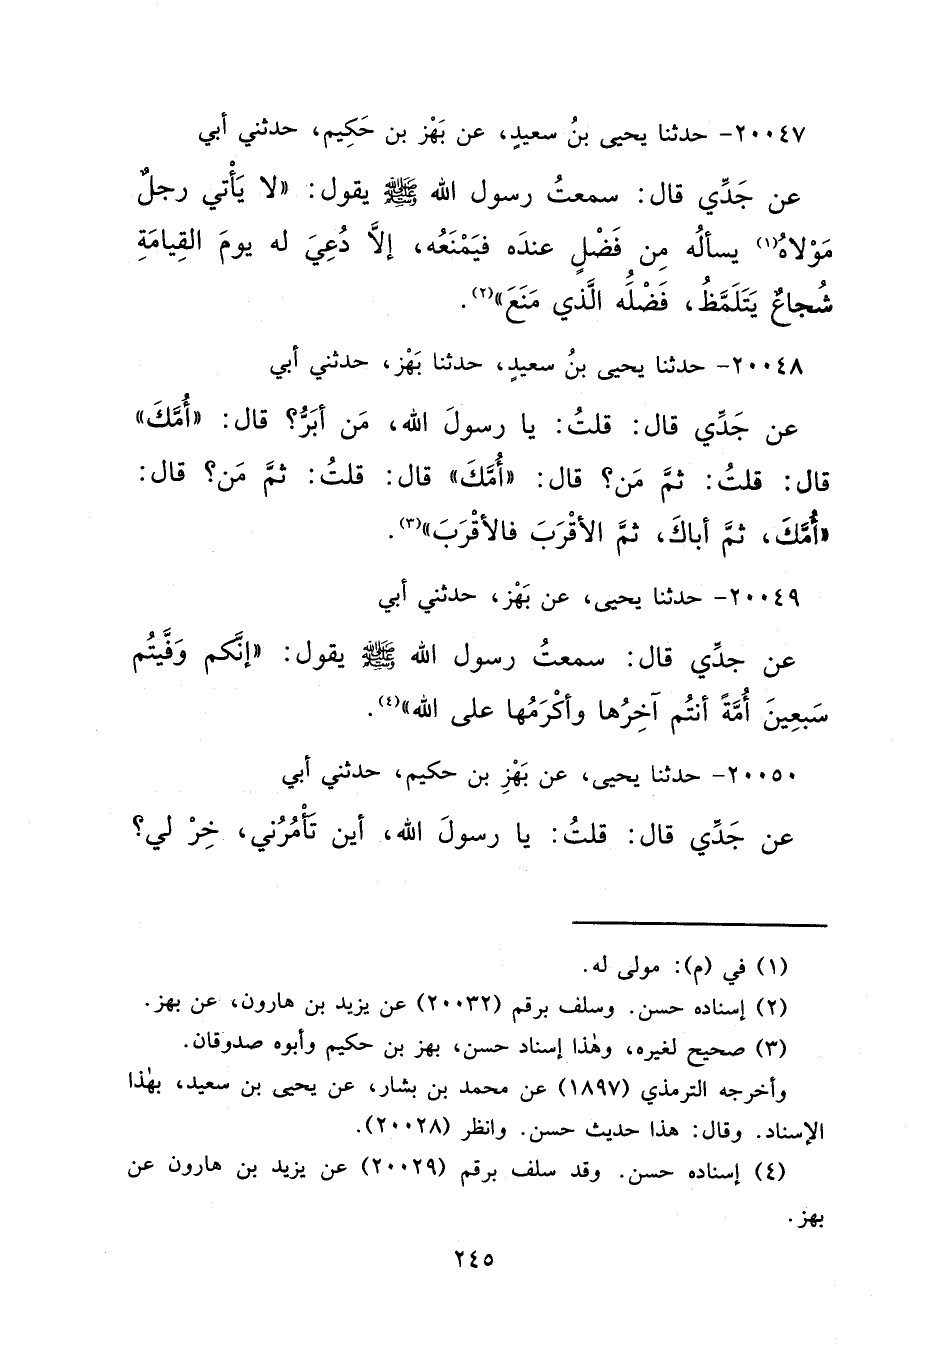 ٢٠٠٤٧- حدثنا يحيى بنُ سعيدٍ، عن بَهْز بن حَكِيم، حدثني أبي
عن جَدِّي قال: سمعتُ رسول الله ﷺ يقول: «لا يَأْتي رجلٌ
مَوْلاهُ(١) يسألُه مِن فَضْلٍ عندَه فيَمْنَعُه، إلاَّ دُعِيَ له يومَ القِيامَةِ
شُجاعٌ يَتَلَمَّظُ، فَضْلَُه الَّذي مَنَعَ»(٢).
٢٠٠٤٨- حدثنا يحيى بنُ سعيدٍ، حدثنا بَهْز، حدثني أبي
عن جَدِّي قال: قلتُ: يا رسولَ الله، مَن أبَرُّ؟ قال: «أُمَّكَ»
قال: قلتُ: ثمَّ مَن؟ قال: «أُمَّكَ» قال: قلتُ: ثمَّ مَن؟ قال:
«أُمَّكَ، ثمَّ أباكَ، ثمَّ الأقْرَبَ فالأقْرَبَ»(٣).
٢٠٠٤٩- حدثنا يحيى، عن بَهْز، حدثني أبي
عن جدِّي قال: سمعتُ رسول الله ﷺ يقول: «إنَّكم وَفَّيتُم
سَبعِينَ أُمَّةً أنتُم آخِرُها وأكْرَمُها على الله»(٤).
٢٠٠٥٠- حدثنا يحيى، عن بَهْزِ بن حكيم، حدثني أبي
عن جَدِّي قال: قلتُ: يا رسولَ الله، أين تَأْمُرُني، خِرْ لي؟
(١) في (م): مولى له.
(٢) إسناده حسن. وسلف برقم (٢٠٠٣٢) عن يزيد بن هارون، عن بهز.
(٣) صحيح لغيره، وهٰذا إسناد حسن، بهز بن حكيم وأبوه صدوقان.
وأخرجه الترمذي (١٨٩٧) عن محمد بن بشار، عن يحيى بن سعيد، بهٰذا
الإسناد. وقال: هذا حديث حسن. وانظر (٢٠٠٢٨).
(٤) إسناده حسن. وقد سلف برقم (٢٠٠٢٩) عن يزيد بن هارون عن
بهز.
٢٤٥